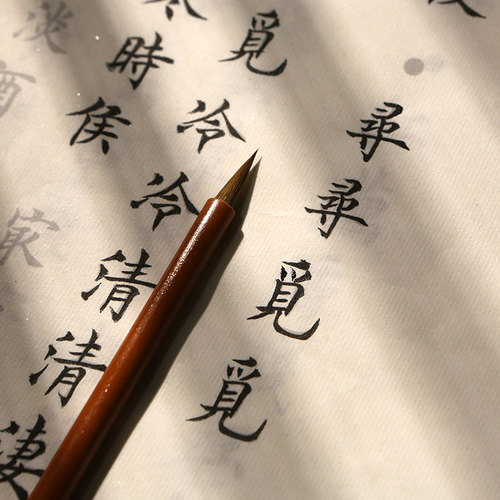 尋尋覓覓
覓冷冷清清淒
時侯
淡酒
家